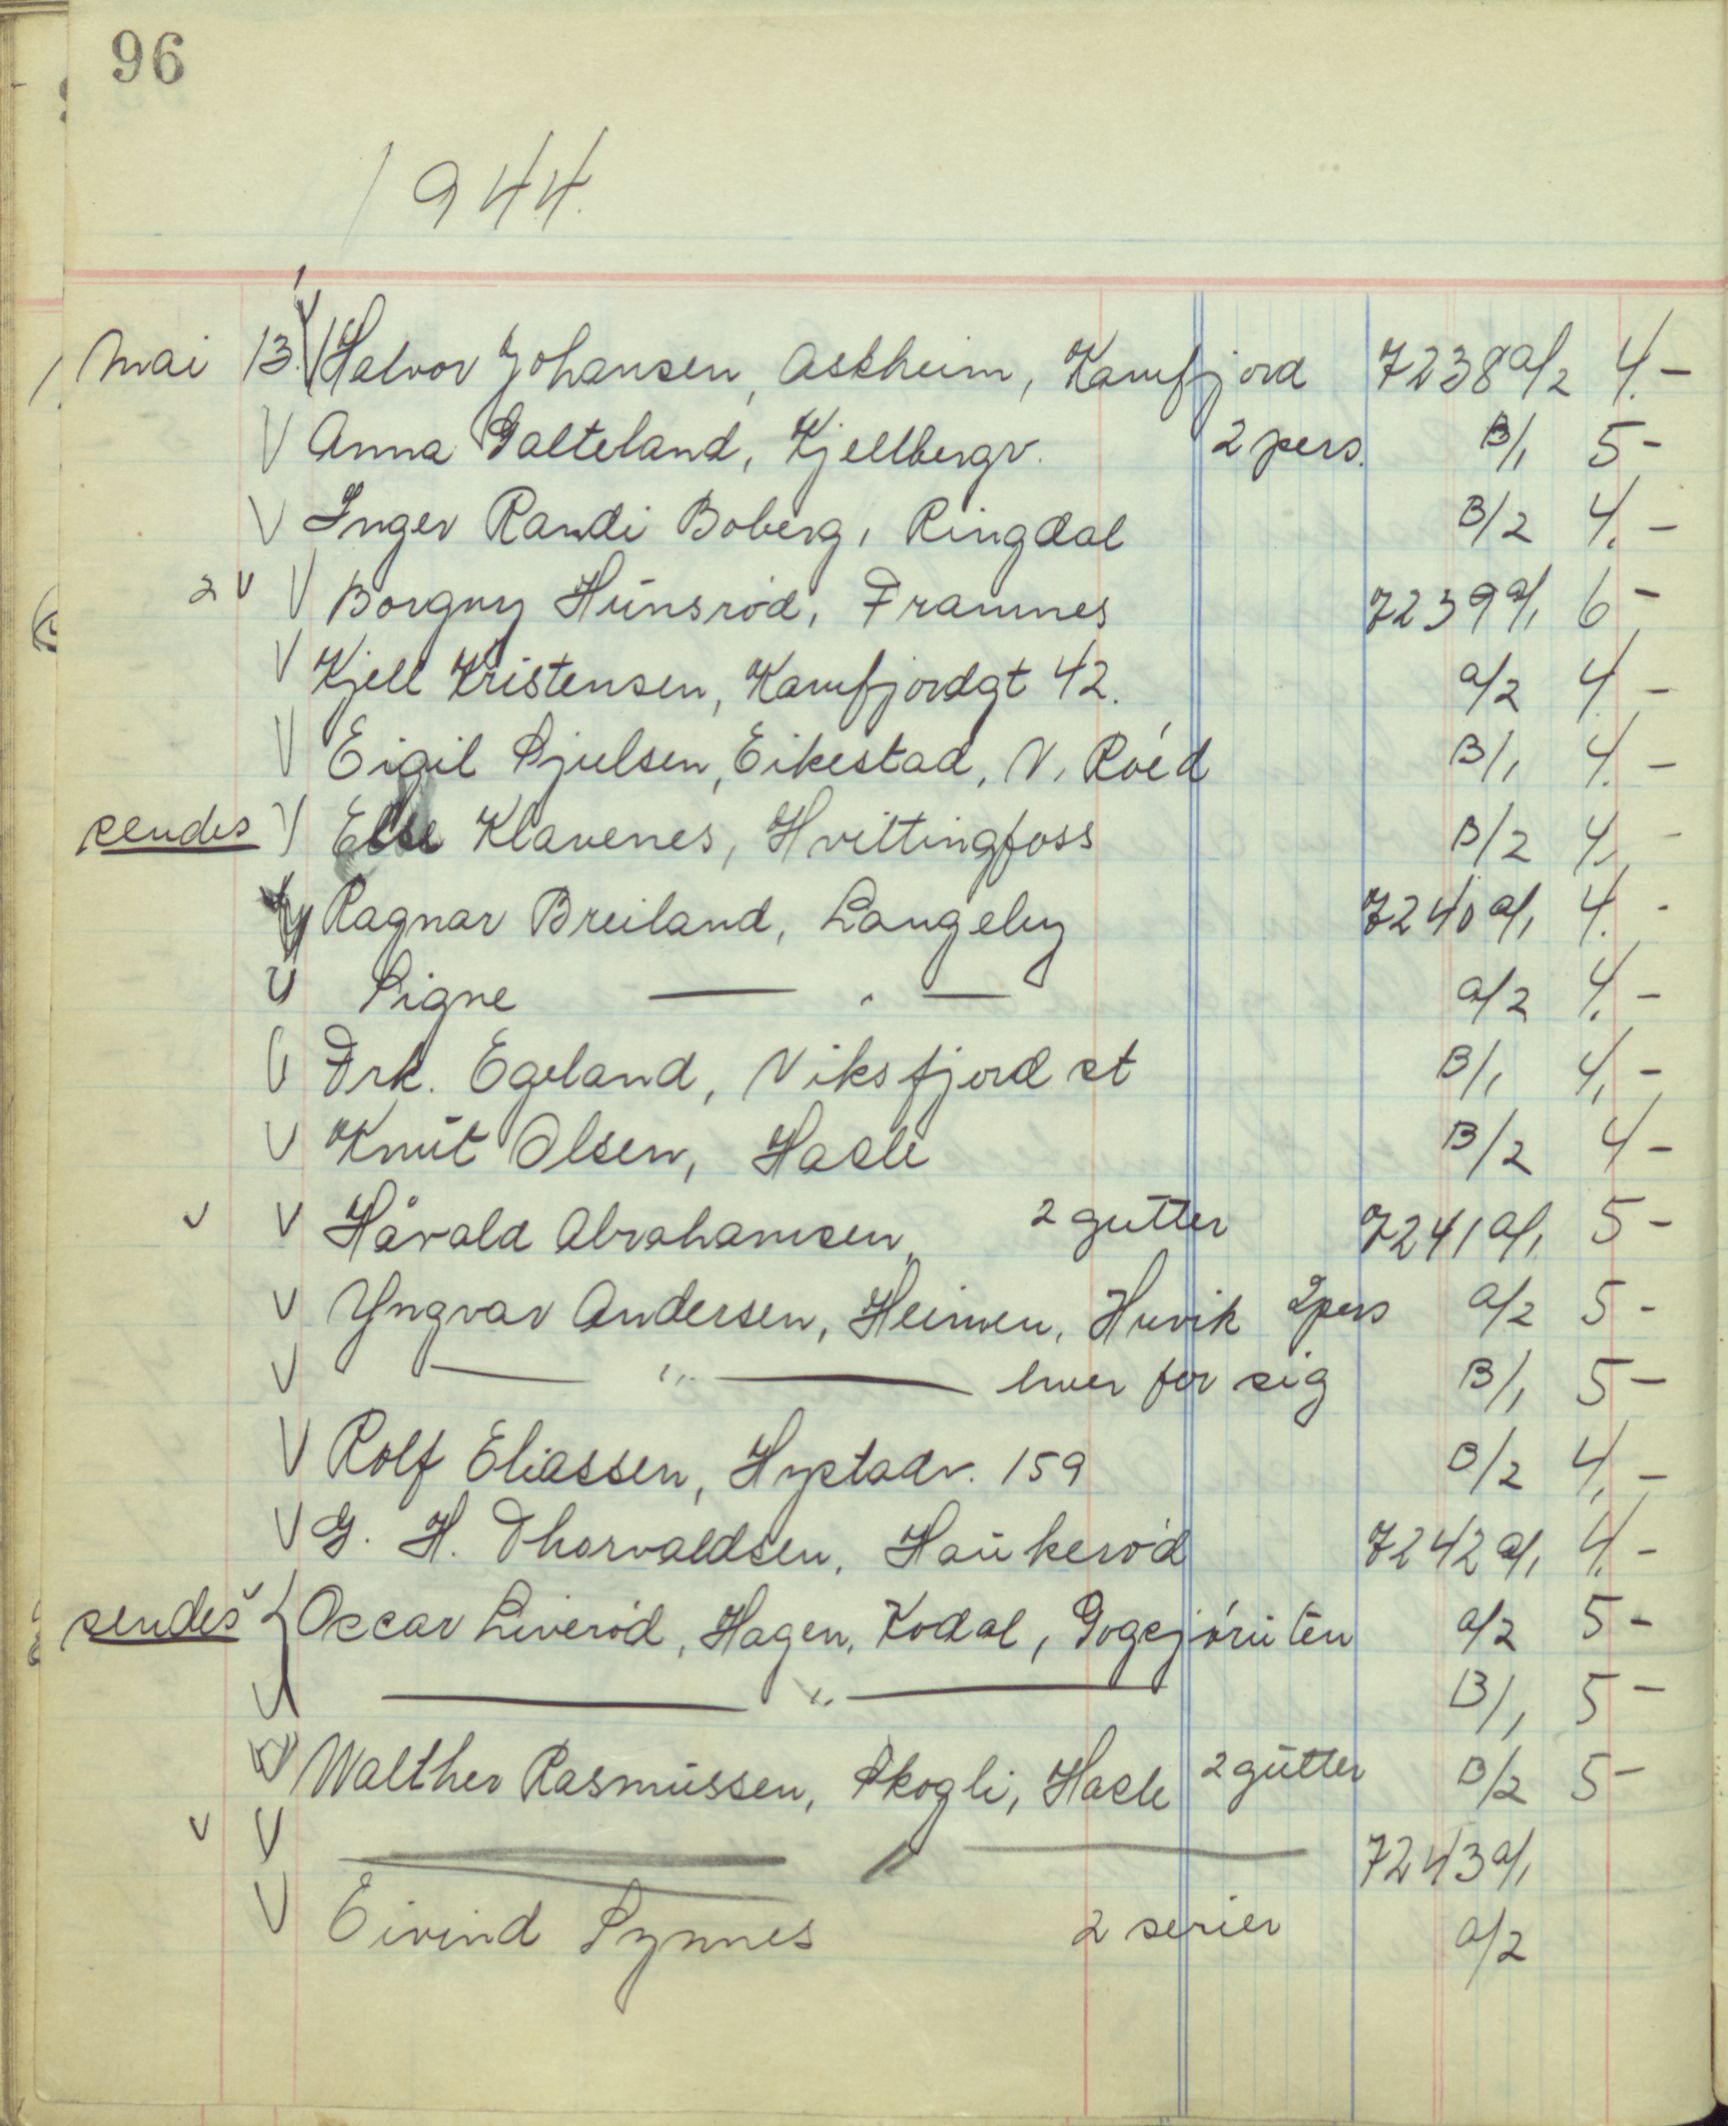 96
1944.
Mai 13. V Halvor Johansen, Askheim, Kamfjord 7238 a/2 4.-
V Anna Galteland, Kjellbergv. 2 pers. B/1 5-
V Inger Randi Boberg, Ringdal B/2 4.-
2 V V Borgny Hunsrød, Framnes 7239 a/1 6-
V Kjell Kristensen, Kamfjordgt 42. a/2 4.-
V Eigil Sjulsen, Eikestad, N. Røed B/1 4.-
sendes V Else Klavenes, Hvittingfoss B/2 4.-
V Ragnar Breiland, Langeby 7240 a/1 4.-
V Signe — " — a/2 4.-
V Frk. Egeland, Viksfjord st B/1 4,-
V Knut Olsen, Hasle B/2 4-
V V Håvald Abrahamsen, 2 gutter 7241 a/1 5-
V Yngvar Andersen, Heimen, Huvik 2 pers a/2 5-
V — " — hver for sig B/1 5-
V Rolf Eliassen, Hystadv. 159 B/2 4,-
V G. H. Thorvaldsen, Haukerød 7242 a/1 4.-
sendes V Oscar Liverød, Hagen, Kodal, Gogsjøruten a/2 5-
V — " — B/1 5-
V Walther Rasmussen, Skogli, Hasle 2 gutter B/2 5-
V V — " — 7243 a/1
V Eivind Synnes 2 serier a/2